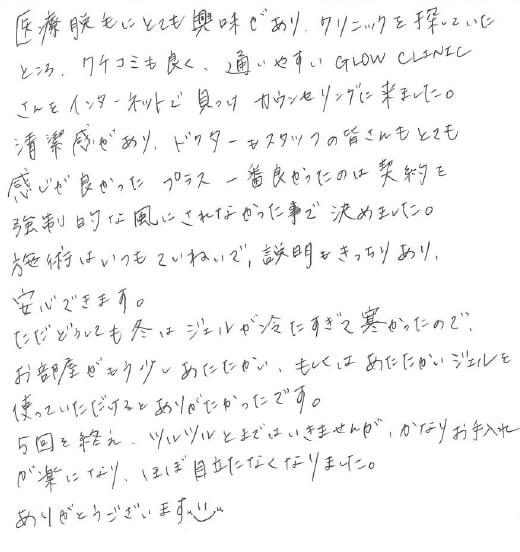 医療脱毛にとても興味があり、クリニックを探していた
ところ、クチコミも良く、通いやすいGLOW CLINIC
さんをインターネットで見つけカウンセリングに来ました。
清潔感があり、ドクターもスタッフの皆さんもとても
感じが良かった プラス 一番良かったのは契約を
強制的な風にされなかった事で決めました。
施術はいつもていねいで、説明もきっちりあり、
安心できます。
ただどうしても冬はジェルが冷たすぎて寒かったので、
お部屋がもう少しあたたかい、もしくはあたたかいジェルを
使っていただけるとありがたかったです。
5回を終え、ツルツルとまではいきませんが、かなりお手入れ
が楽になり、ほぼ目立たなくなりました。
ありがとうございます